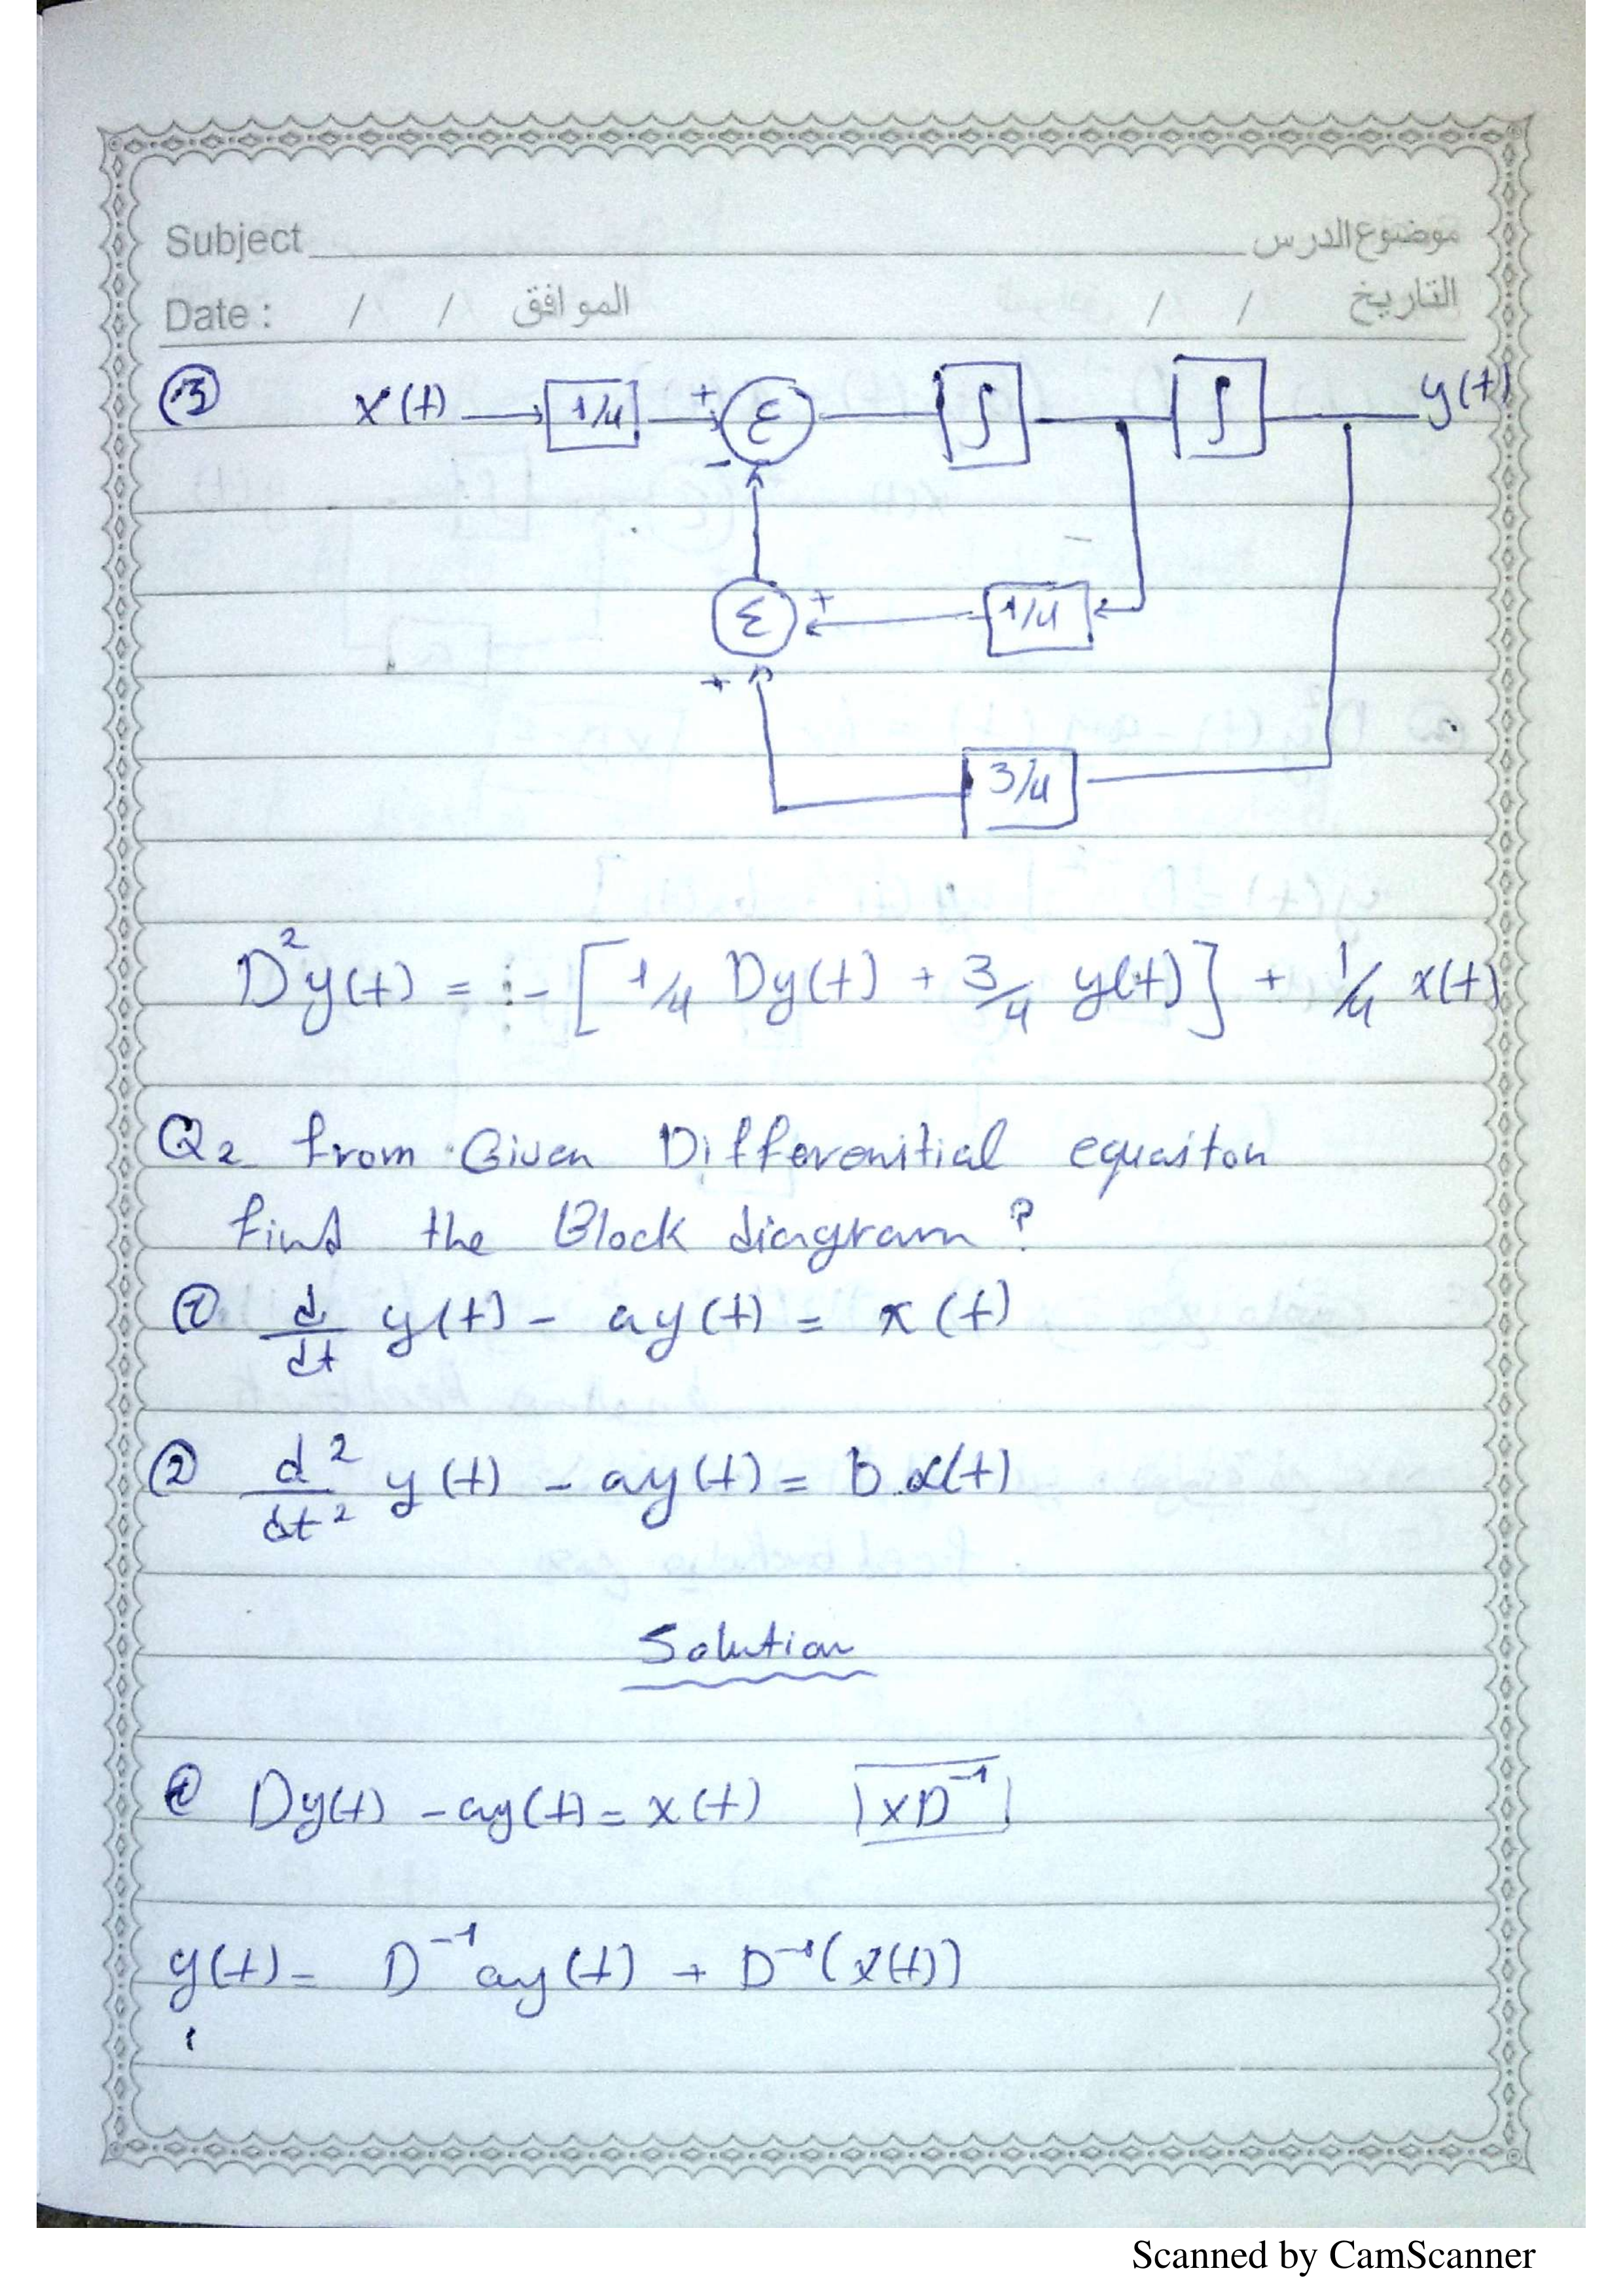 Subject موضوع الدرس
Date : / / الموافق / / التاريخ
③ x(t) 1/4 + Σ ∫ ∫ y(t)
-
Σ + 1/4
+
3/4
D²y(t) = :- [1/4 Dy(t) + 3/4 y(t)] + 1/4 x(t)
Q2 from Given Differenitial equaiton
find the Block diagram ?
① d/dt y(t) - ay(t) = x(t)
② d²/dt² y(t) - ay(t) = b x(t)
Solution
① Dy(t) - ay(t) = x(t) xD⁻¹
y(t) = D⁻¹ay(t) + D⁻¹(x(t))
Scanned by CamScanner